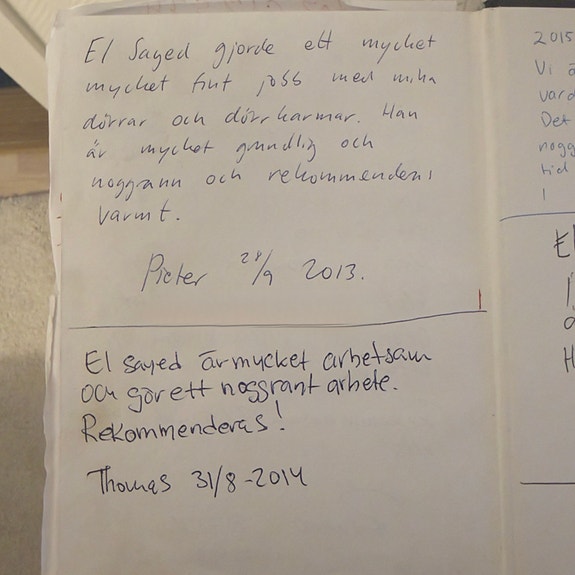 El Sayed gjorde ett mycket
mycket fint jobb med mina
dörrar och dörrkarmar. Han
är mycket grundlig och
noggrann och rekommenderas
varmt.
Pieter 28/9 2013.
El sayed är mycket arbetsam
och gör ett noggrant arbete.
Rekommenderas!
Thomas 31/8-2014
2015
Vi
Det
tid
El